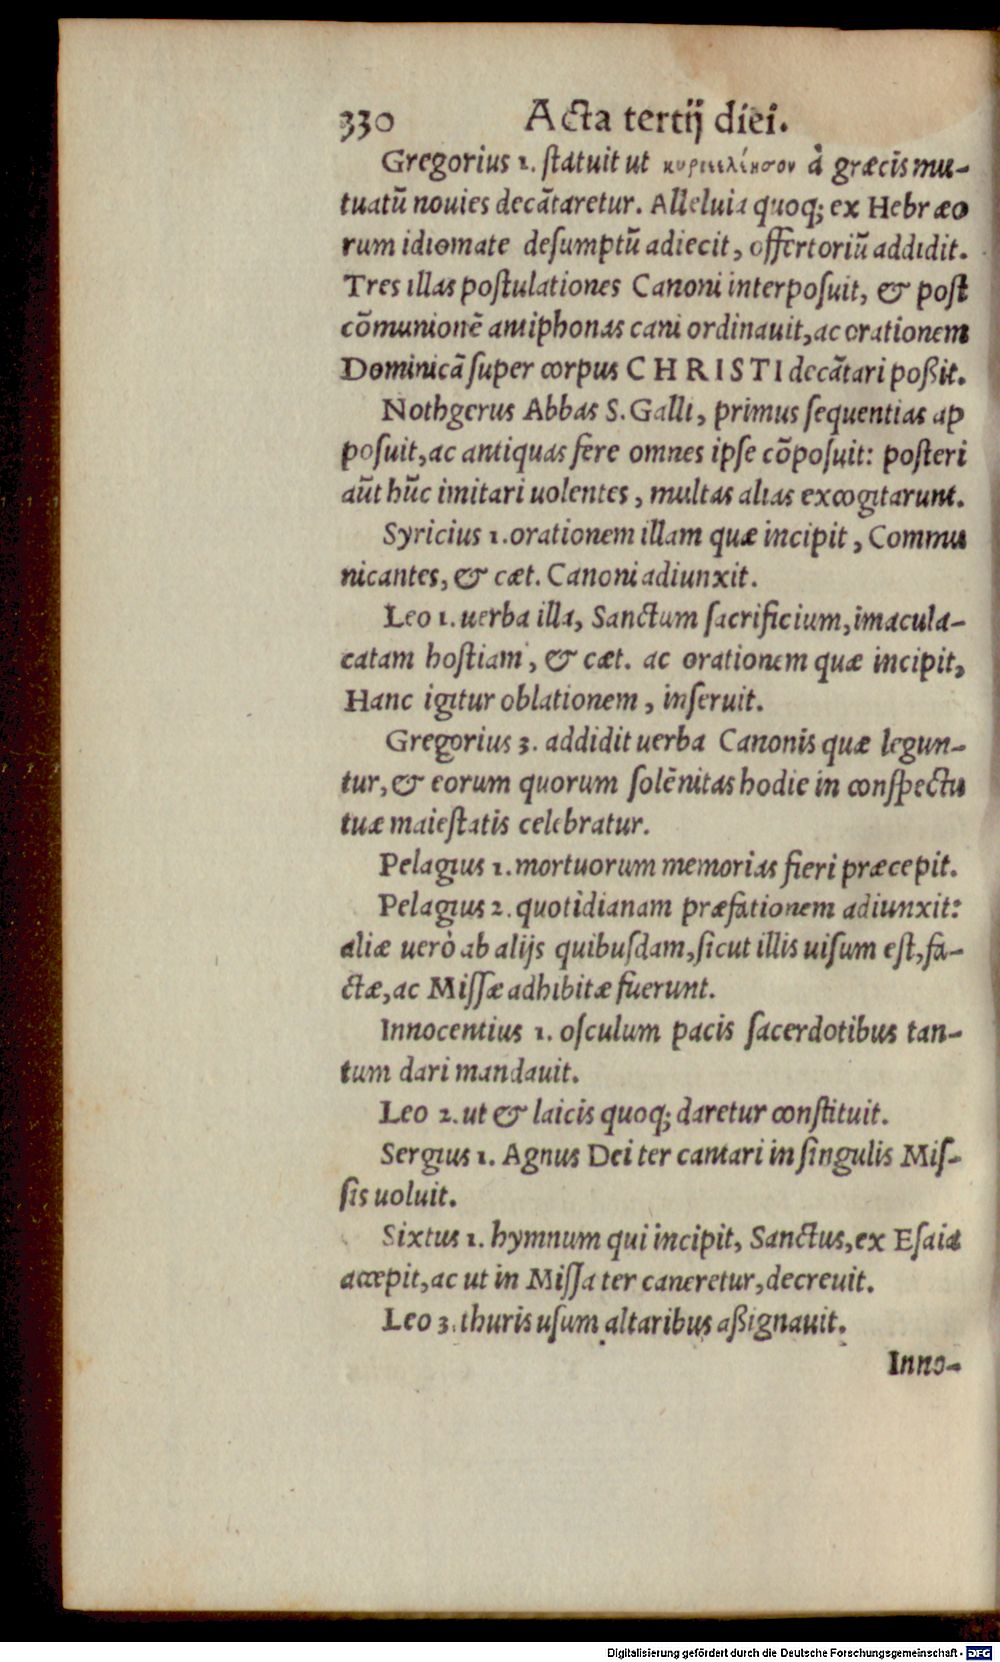 330 Acta tertij diei.
Gregorius 1. statuit ut κυριελέησον à græcis mu-
tuatũ nouies decãtaretur. Alleluia quoq; ex Hebræo
rum idiomate desumptũ adiecit, offertoriũ addidit.
Tres illas postulationes Canoni interposuit, & post
cõmunionẽ antiphonas cani ordinauit, ac orationem
Dominicã super corpus CHRISTI decãtari poßit.
Nothgerus Abbas S. Galli, primus sequentias ap
posuit, ac antiquas fere omnes ipse cõposuit: posteri
aũt hũc imitari uolentes, multas alias excogitarunt.
Syricius 1. orationem illam quæ incipit, Commu
nicantes, & cæt. Canoni adiunxit.
Leo 1. uerba illa, Sanctum sacrificium, imacula-
catam hostiam, & cæt. ac orationem quæ incipit,
Hanc igitur oblationem, inseruit.
Gregorius 3. addidit uerba Canonis quæ legun-
tur, & eorum quorum solẽnitas hodie in conspectu
tuæ maiestatis celebratur.
Pelagius 1. mortuorum memorias fieri præcepit.
Pelagius 2. quotidianam præfationem adiunxit:
aliæ uerò ab alijs quibusdam, sicut illis uisum est, fa-
ctæ, ac Missæ adhibitæ fuerunt.
Innocentius 1. osculum pacis sacerdotibus tan-
tum dari mandauit.
Leo 2. ut & laicis quoq; daretur constituit.
Sergius 1. Agnus Dei ter cantari in singulis Mis-
sis uoluit.
Sixtus 1. hymnum qui incipit, Sanctus, ex Esaia
accepit, ac ut in Missa ter caneretur, decreuit.
Leo 3. thuris usum altaribus aßignauit.
Inno-
Digitalisierung gefördert durch die Deutsche Forschungsgemeinschaft - DFG